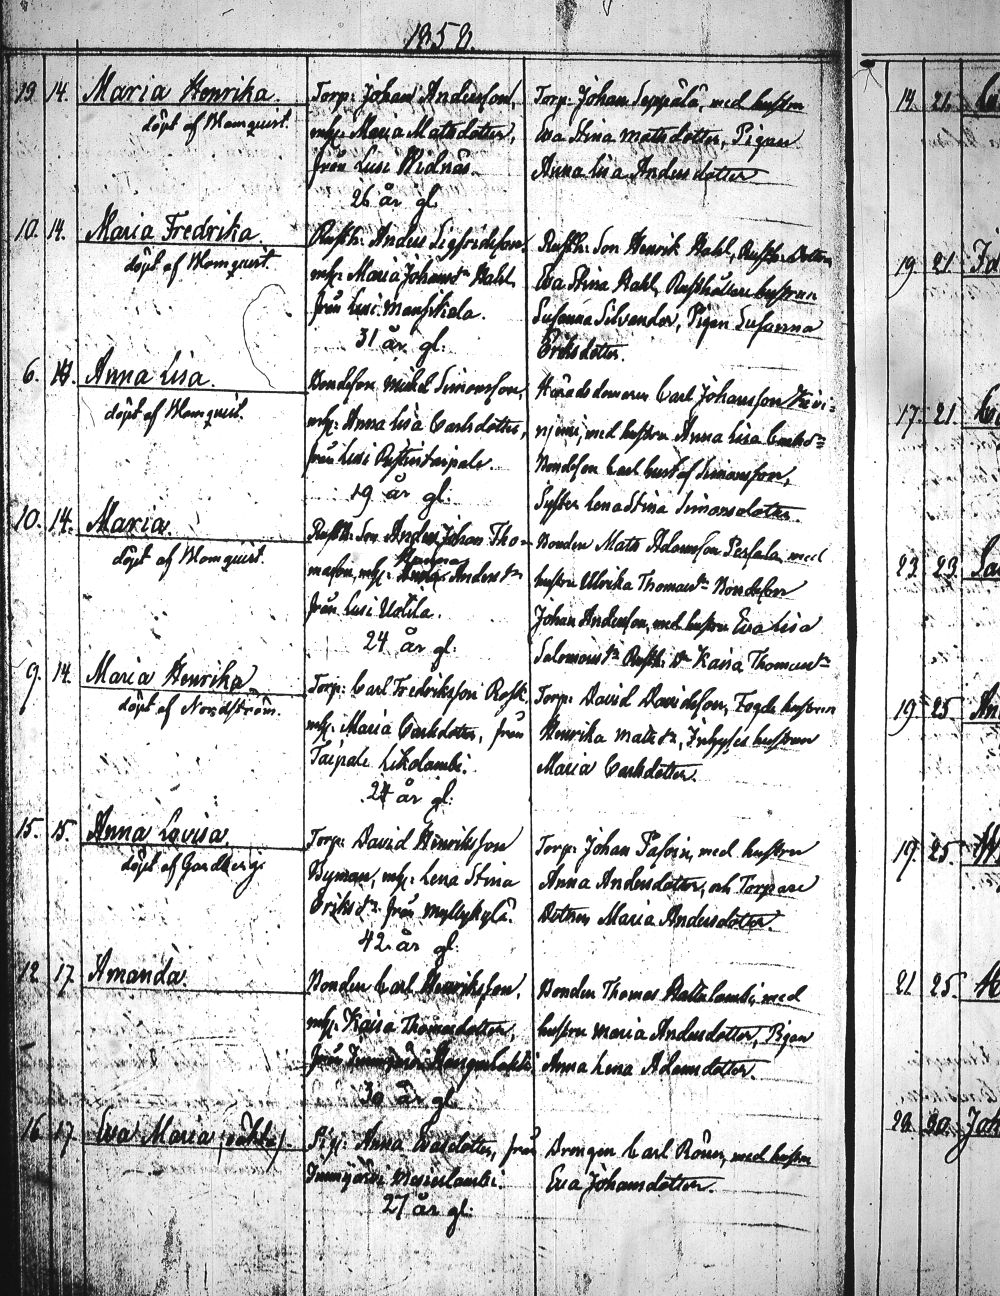 1858.
13 14. Maria Henrika.
döpt af Blomquist.
Torp: Johan Andersson,
mh: Maria Matsdotter,
från Lusi Widnäs.
26 år gl.
Torp: Johan Seppälä, med hustru
Eva Stina Matsdotter, Pigan
Anna Lisa Andersdotter
10. 14. Maria Fredrika
döpt af Blomquist.
Rusth: Anders Sigfridsson,
mh: Maria Johansdr Hahl
från Lusi
31 år gl.
Rusth: Son Henrik Hahl, Rusth: Dottren
Eva Stina Hahl, Rusthållare hustrun
Susanna Silvander, Pigan Susanna
Eriksdotter.
6. 14. Anna Lisa.
döpt af Blomquist.
Bondeson Mickel Simonsson,
mh: Anna Lisa Carlsdotter,
från Lusi
19 år gl.
Häradsdomaren Carl Johansson
med hustru Anna Lisa
Bondeson Carl Gustaf Simonsson,
Syster Lena Stina Simonsdotter.
10. 14. Maria.
döpt af Blomquist.
Rusth: Son Anders Johan Tho-
masson, mh: Hanna Andersdr
från Lusi Uotila.
24 år gl.
Bonden Mats Adamsson Perfala, med
hustru Ulrika Thomasdr Bondeson
Johan Andersson, med hustru Eva Lisa
Salomonsdr Rusth: dr Kaisa Thomasdr
9. 14. Maria Henrika
döpt af Nordström.
Torp: Carl Fredriksson
mh: Maria Carlsdotter, från
Taipale Likolambi.
24 år gl.
Torp: David Davidsson, Fogde hustrun
Henrika Matsdr, hustrun
Maria Carlsdotter.
15. 15. Anna Lovisa.
döpt af Gardberg.
Torp: David Henriksson
Byman, mh: Lena Stina
Eriksdr från Myllykylä.
42 år gl.
Torp: Johan Pasoin, med hustru
Anna Andersdotter, och Torpare
Dottren Maria Andersdotter.
12. 17. Amanda.
Bonden Carl Henriksson,
mh: Kaisa Thomasdotter,
från
30 år gl
Bonden Thomas med
hustru Maria Andersdotter, Pigan
Anna Lena Adamsdotter.
16 17. Eva Maria (oäkta)
Pig: Anna från
27 år gl.
Drengen Carl med hustru
Eva Johansdotter.
14. 21.
19. 21
17. 21.
23. 23.
19. 25
19. 25.
21. 25.
28. 30. Joh